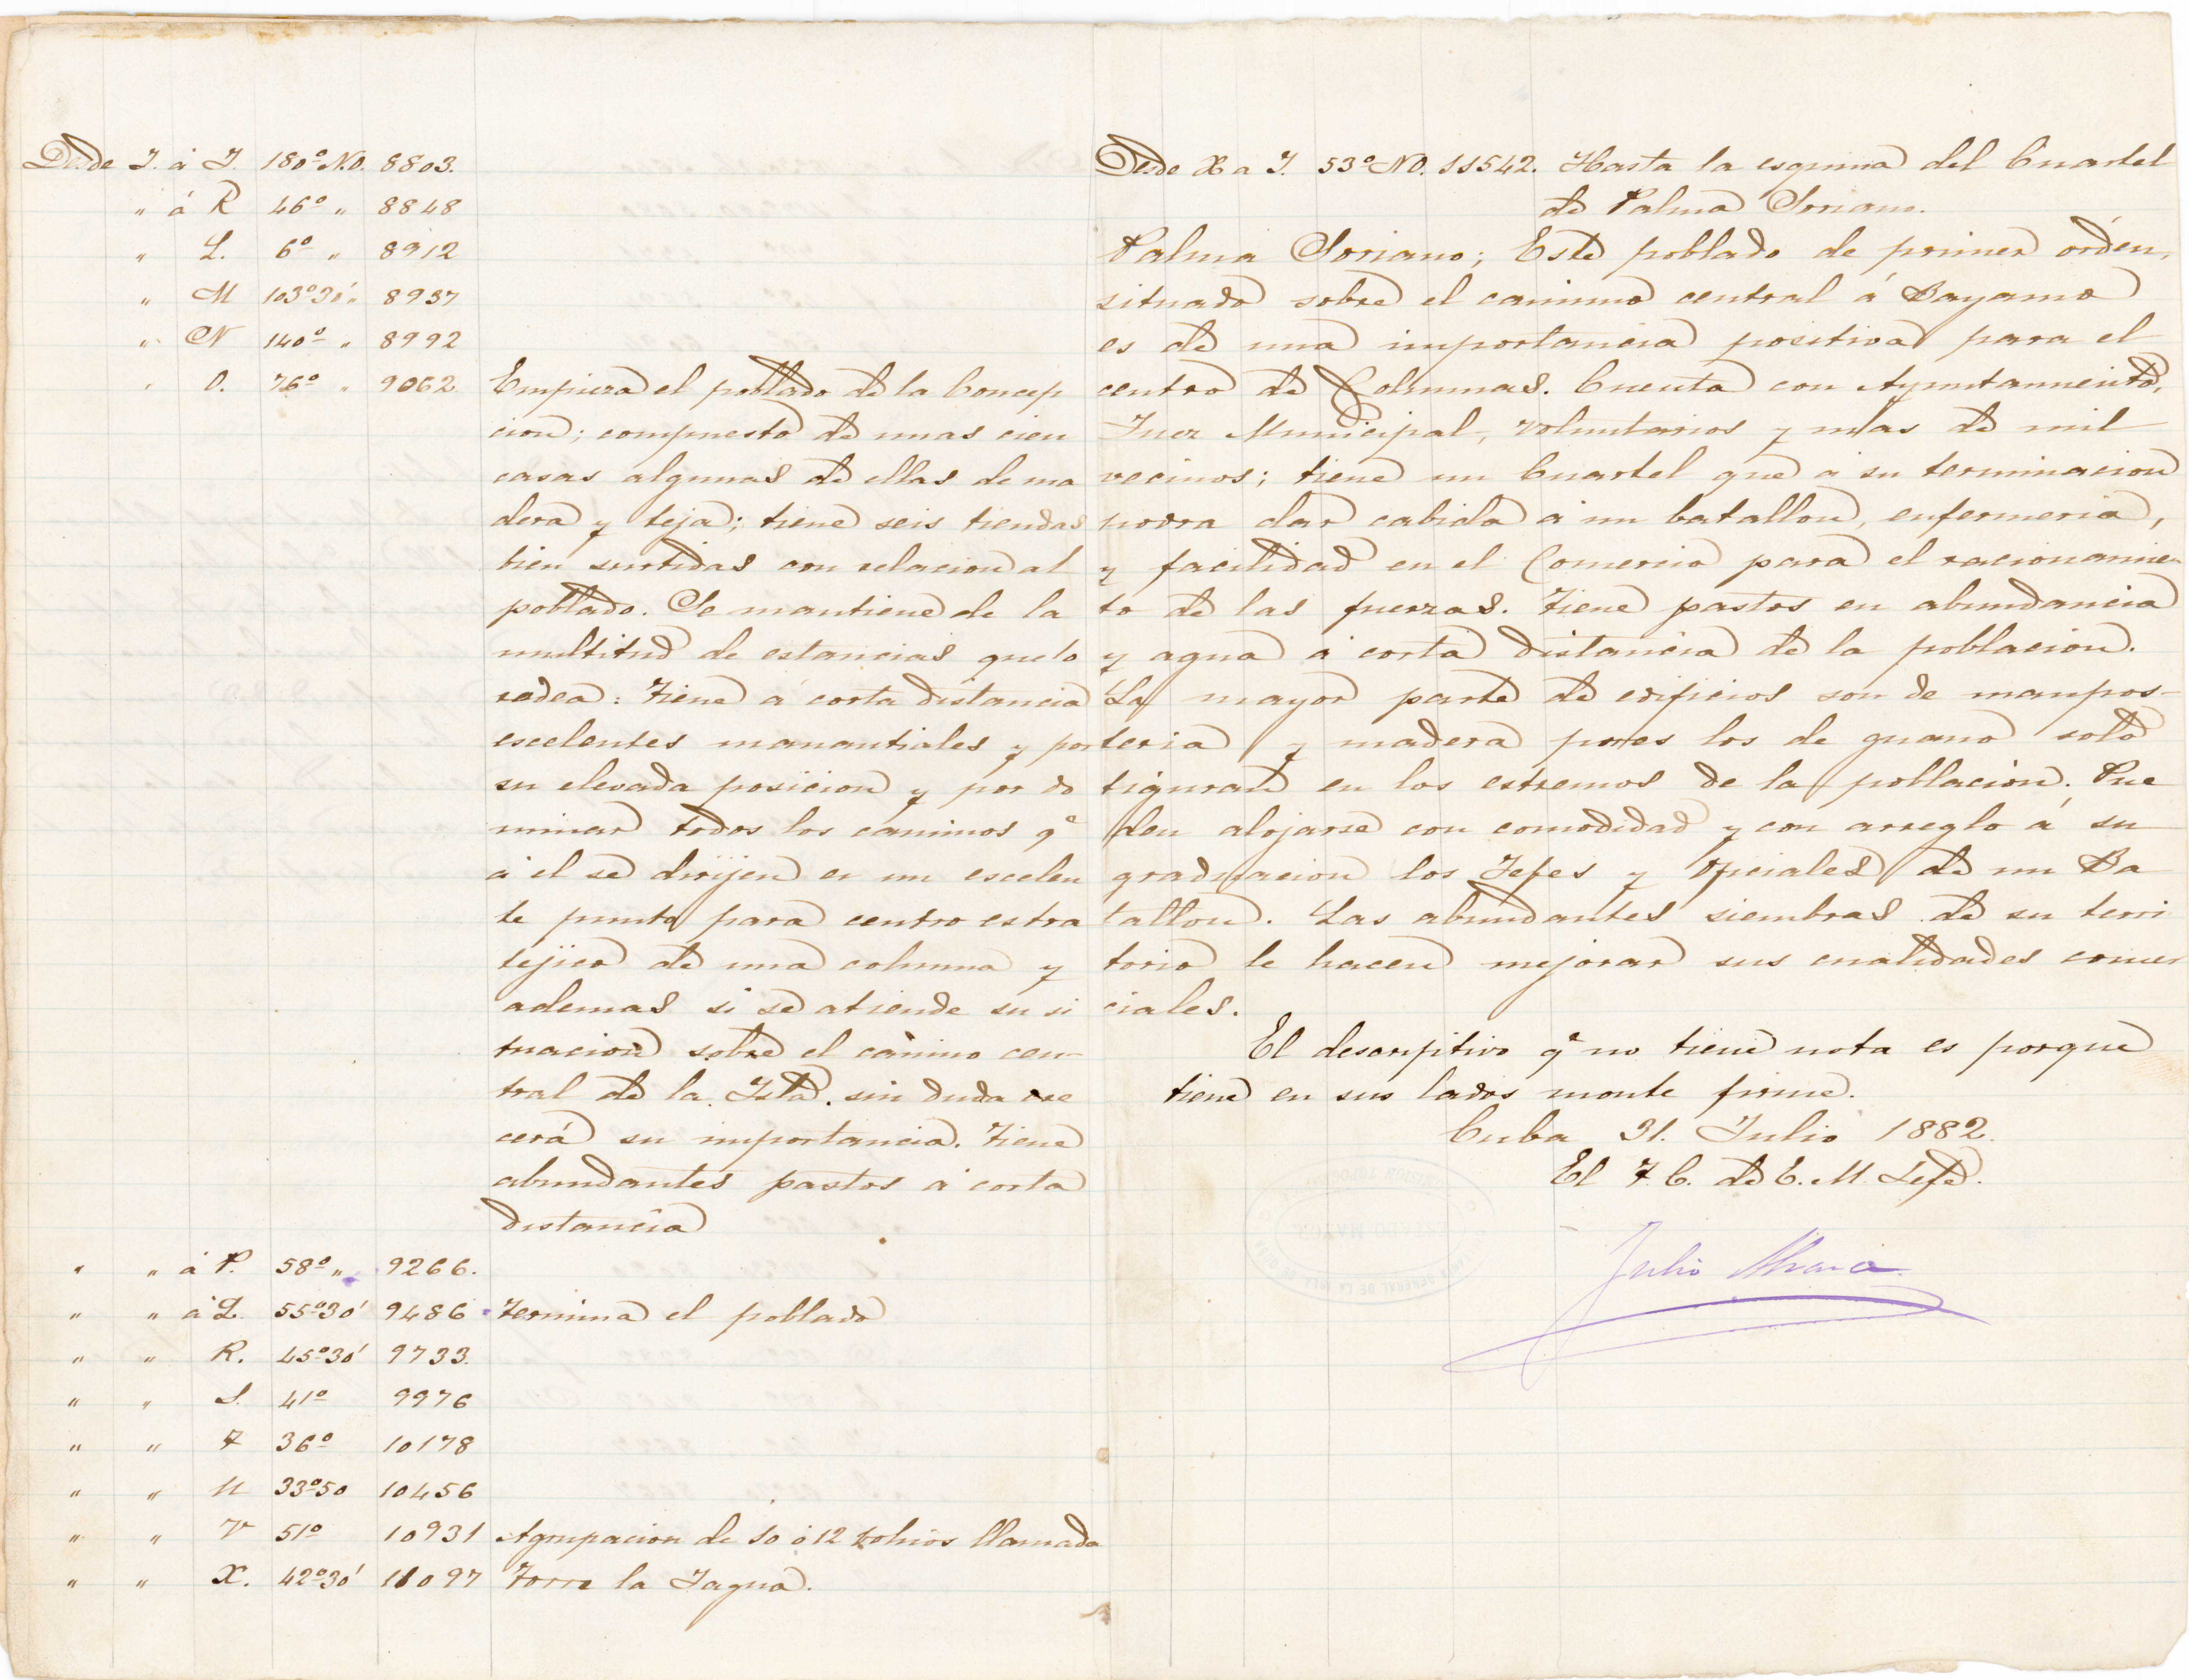 Desde I. á J. 180º N.O. 8803.
" á K 46º " 8848
" L. 6º " 8912
" M 103º30' " 8937
" N 140º " 8992
" O. 76º " 9062 Empieza el poblado de la Concep
cion; compuesto de unas cien
casas algunas de ellas de ma
dera y teja; tiene seis tiendas
bien surtidas con relacion al
poblado. Se mantiene de la
multitud de estancias que lo
rodea: Tiene á corta distancia
escelentes manantiales y por
su elevada posicion y por do
minar todos los caminos qe
á el se dirijen es un escelen
te punto para centro estra
tejico de una columna y
ademas si se atiende su si
tuacion sobre el camino cen-
tral de la Isla. sin duda cre
cerá su importancia. Tiene
abundantes pastos á corta
distancia
" " á P. 58º " 9266.
" " á Q. 55º30' 9486 Termina el poblado
" " R. 45º30' 9733.
" " S. 41º 9976
" " T 36º 10178
" " U 33º50 10456
" " V 51º 10931 Agrupacion de 10 ó 12 bohios llamada
" " X. 42º30' 11097 Torre la Jagua.
Desde X a Y. 53º NO. 11542. Hasta la esquina del Cuartel
de Palma Soriano.
Palma Soriano; Este poblado de primer orden,
situado sobre el camino central á Bayamo
es de una importancia positiva para el
centro de Columnas. Cuenta con Ayuntamiento,
Juez Municipal, voluntarios y mas de mil
vecinos; tiene un Cuartel que á su terminacion
podra dar cabida á un batallon, enfermeria,
y facilidad en el Comercio para el racionamien
to de las fuerzas. Tiene pastos en abundancia
y agua á corta distancia de la poblacion.
La mayor parte de edificios son de mampos-
teria y madera pues los de guano solo
figuran en los estremos de la poblacion. Pue
den alojarse con comodidad y con arreglo á su
graduacion los Jefes y Oficiales de un Ba
tallon. Las abundantes siembras de su terri
torio le hacen mejorar sus cualidades comer
ciales.
El descriptivo qe no tiene nota es porque
tiene en sus lados monte firme.
Cuba 31. Julio 1882.
El T. C. de E. M. Jefe.
Julio
ESTADO MAYOR
GENERAL DE LA ISLA DE CUBA